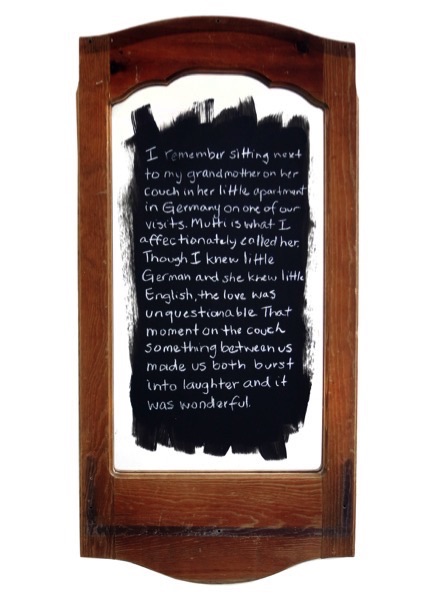 I remember sitting next
to my grandmother on her
couch in her little apartment
in Germany on one of our
visits. Mutti is what I
affectionately called her.
Though I knew little
German and she knew little
English, the love was
unquestionable. That
moment on the couch
something between us
made us both burst
into laughter and it
was wonderful.